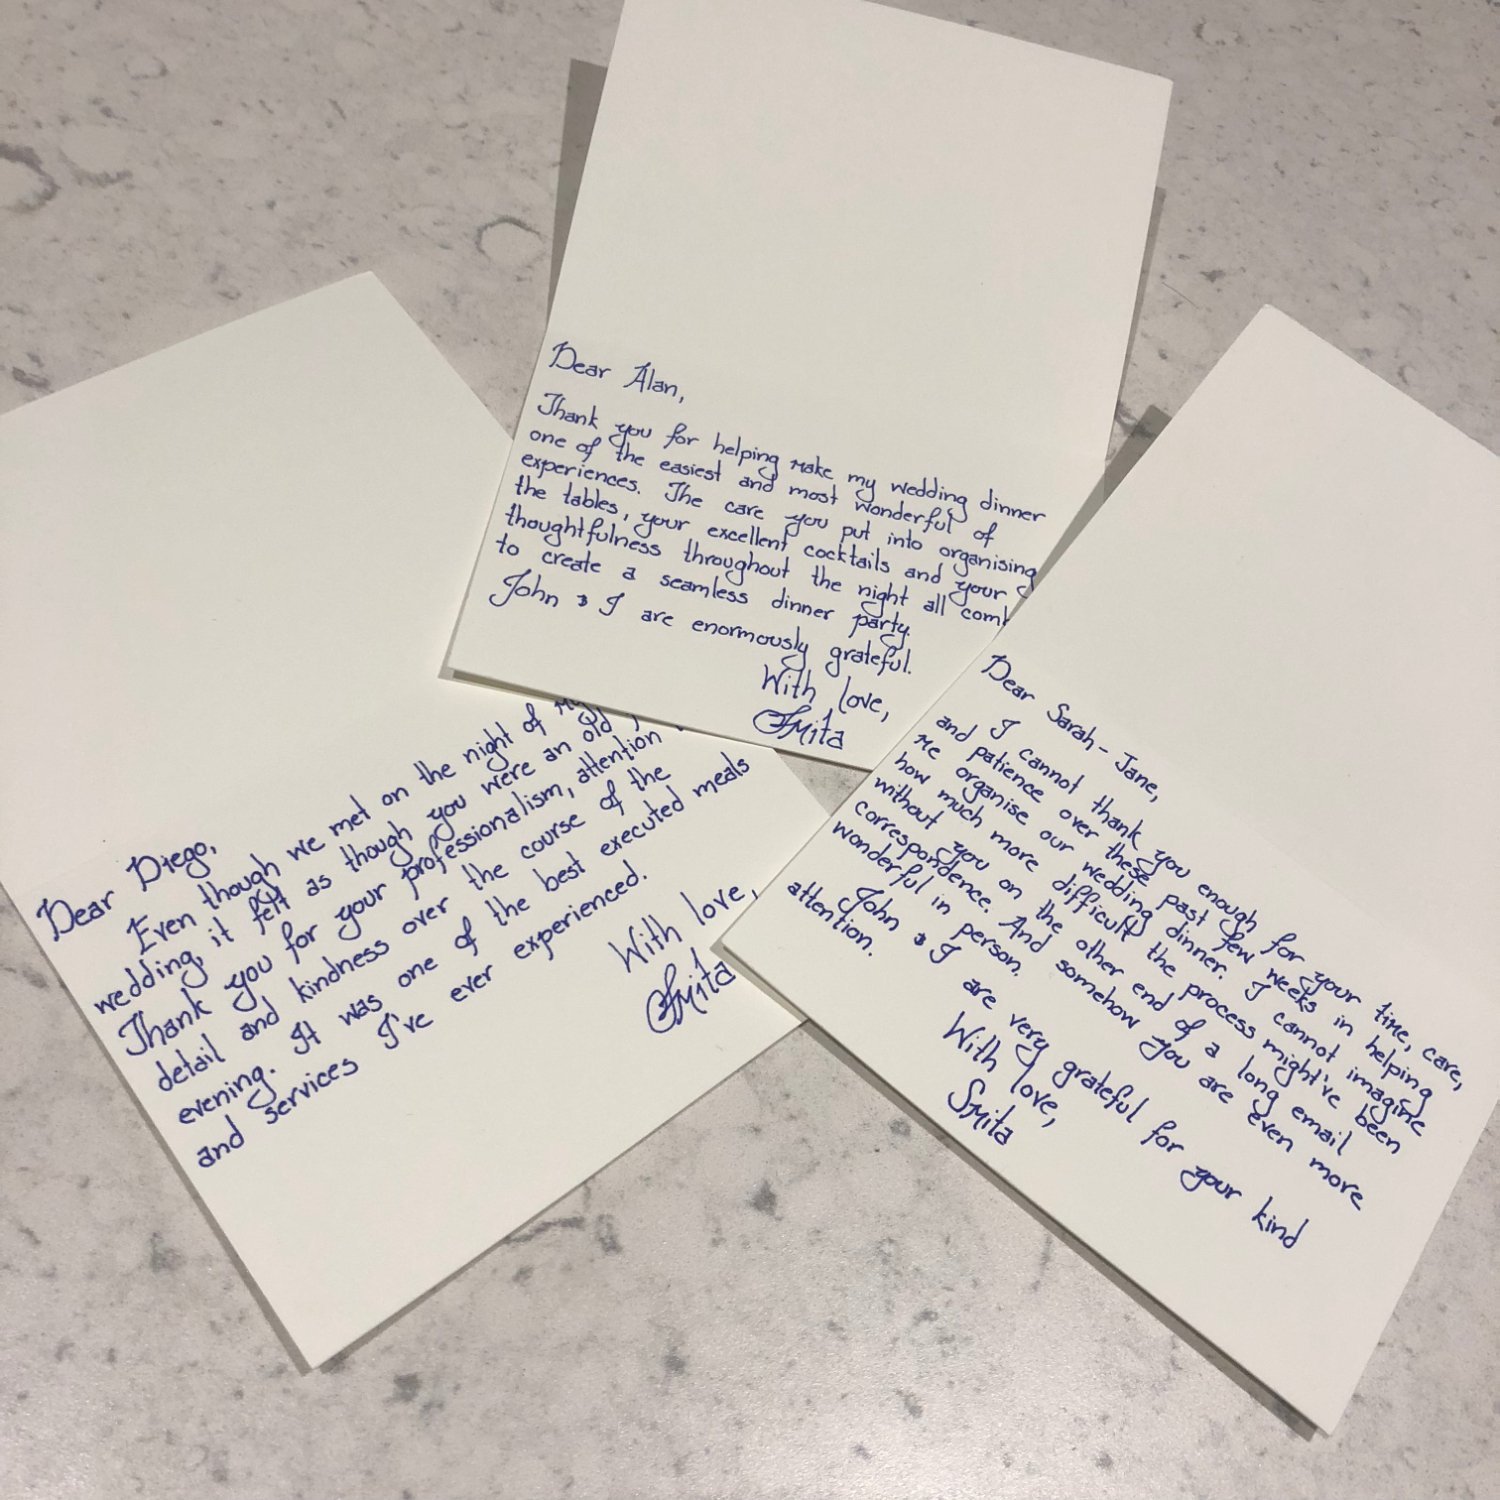 Dear Alan,
Thank you for helping make my wedding dinner
one of the easiest and most wonderful of
experiences. The care you put into organising
the tables, your excellent cocktails and your
thoughtfulness throughout the night all
to create a seamless dinner party.
John & I are enormously grateful.
With love,
Smita
Dear Diego,
Even though we met on the night of my
wedding, it felt as though you were an old
Thank you for your professionalism, attention
detail and kindness over the course of the
evening. It was one of the best executed meals
and services I've ever experienced.
With love,
Smita
Dear Sarah-Jane,
I cannot thank you enough for your time, care,
and patience over these past few weeks in helping
me organise our wedding dinner. I cannot imagine
how much more difficult the process might've been
without you on the other end of a long email
correspondence. And somehow you are even more
wonderful in person.
John & I are very grateful for your kind
attention.
With love,
Smita